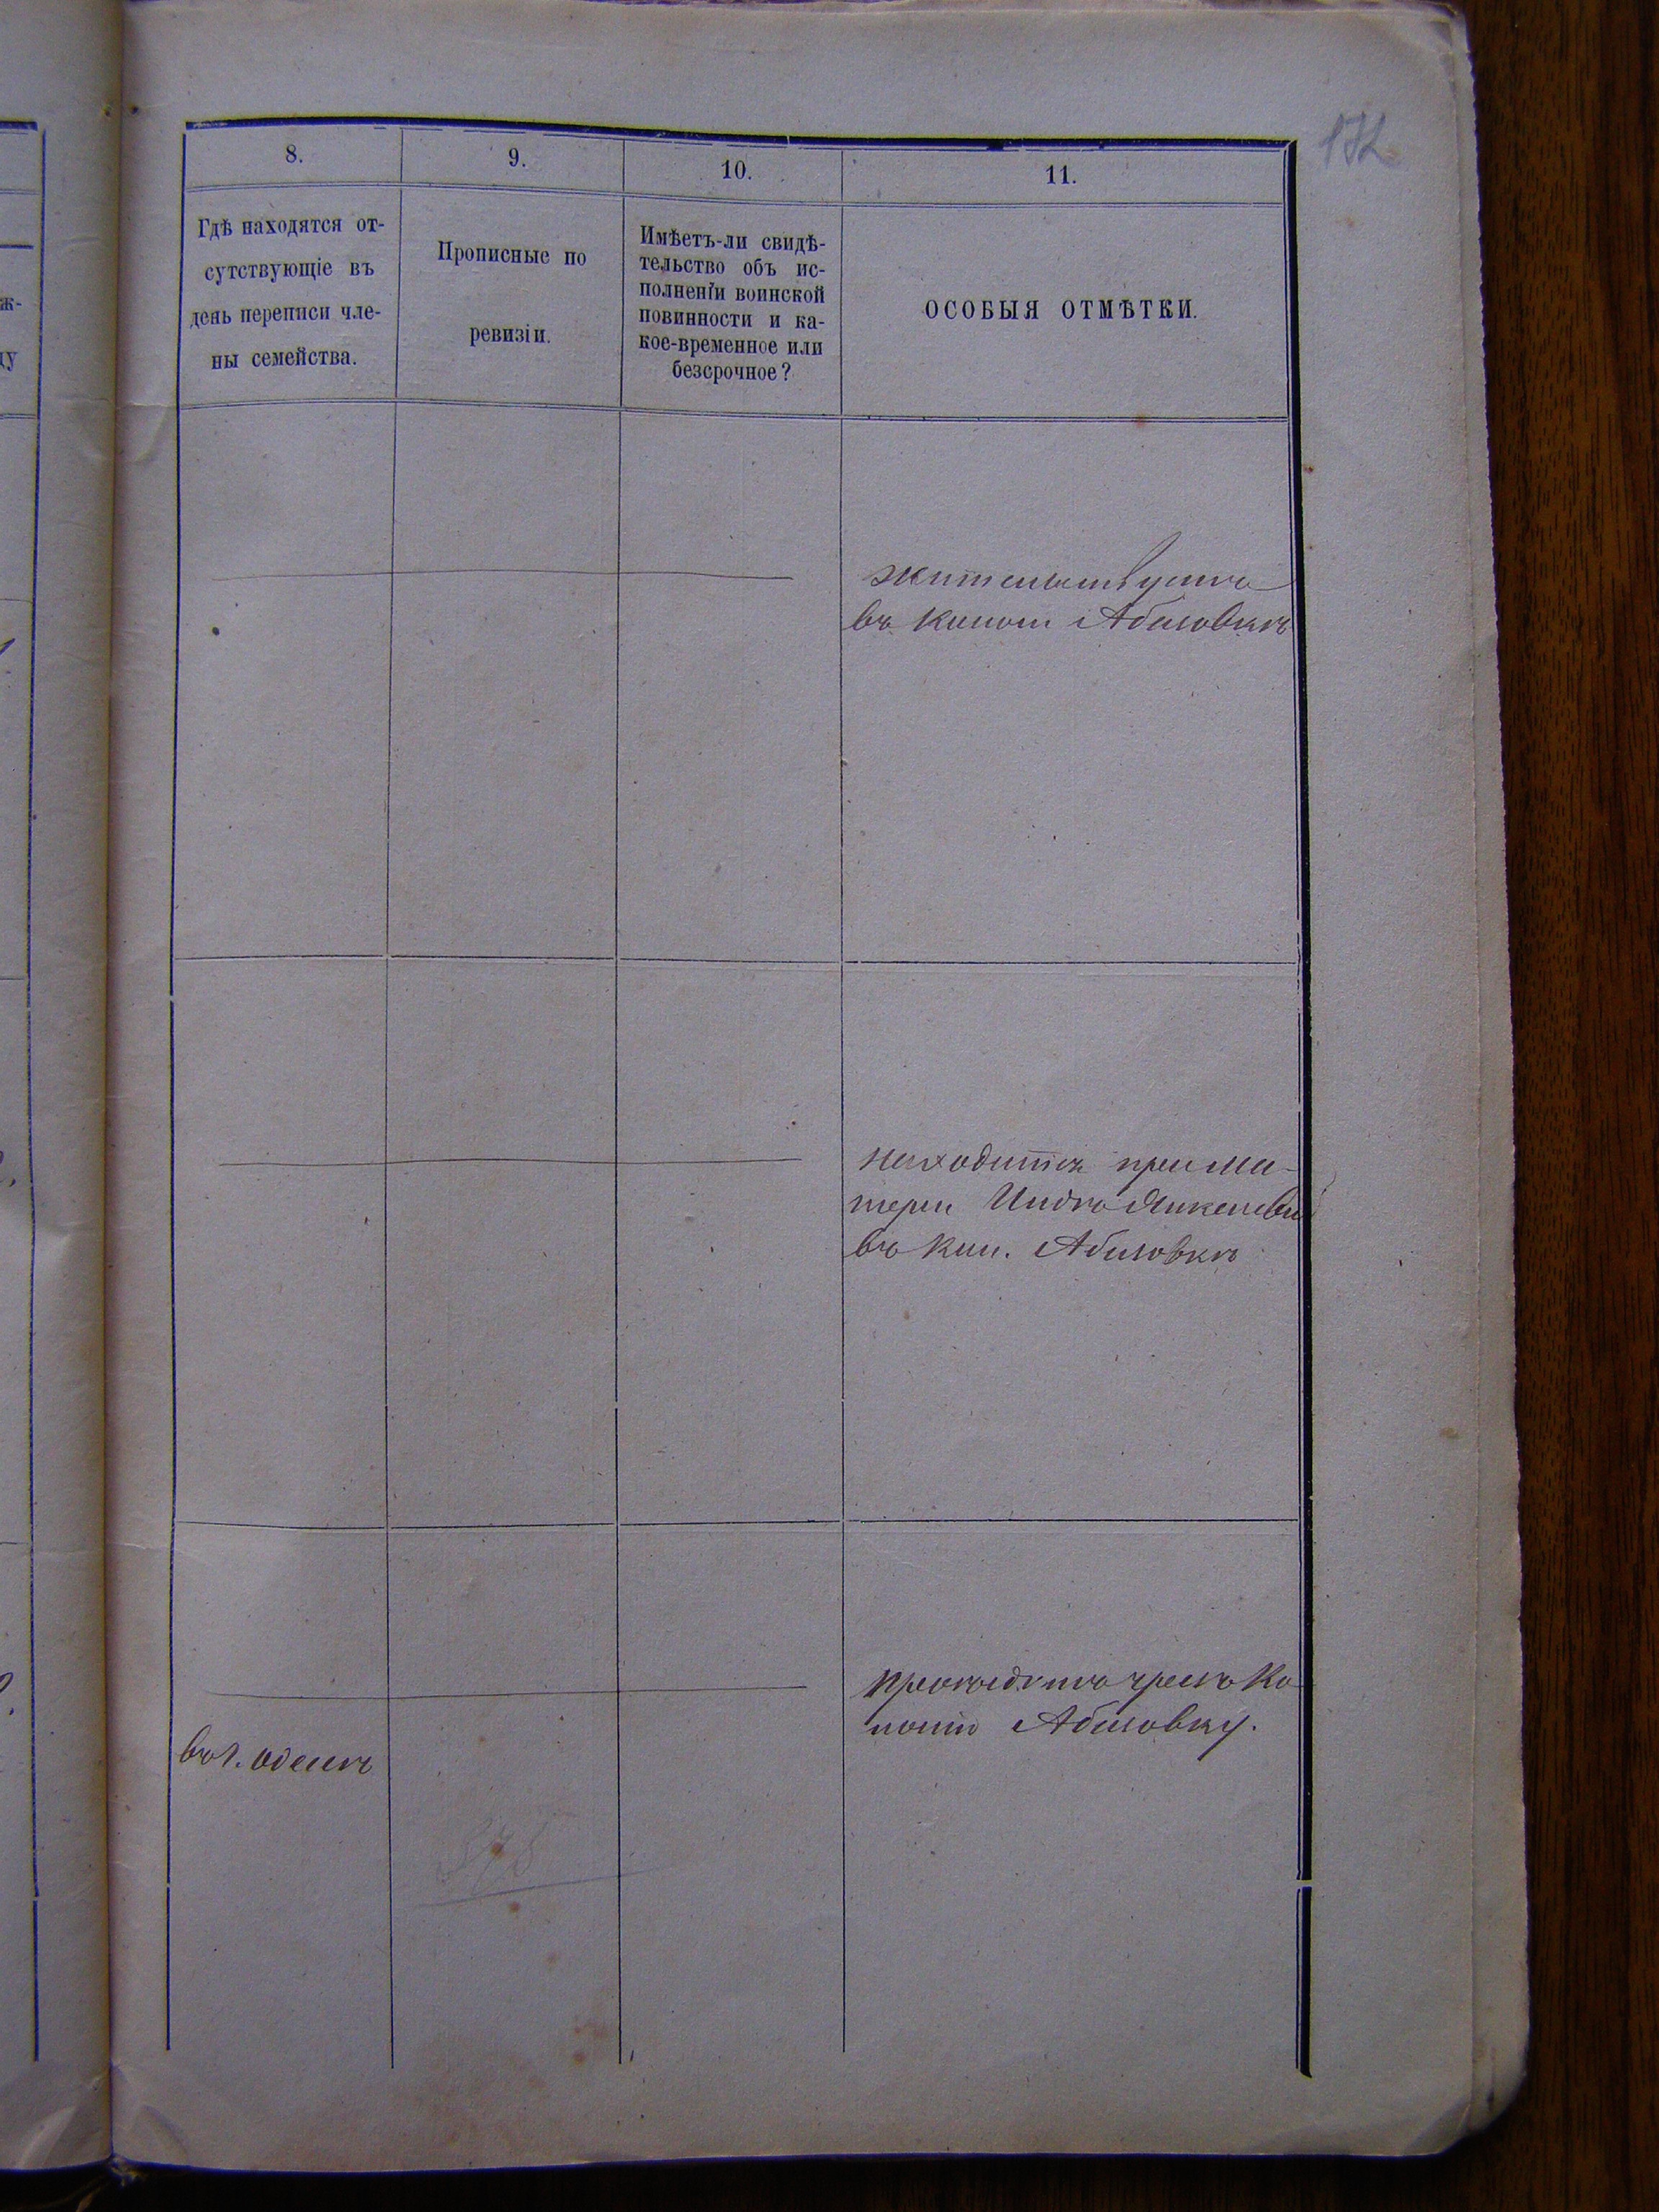 172
8.
9.
10.
11.
Гдѣ находятся от-
сутствующіе въ
день переписи чле-
ны семейства.
Прописные по
ревизіи.
Имѣетъ-ли свидѣ-
тельство объ ис-
полненіи воинской
повинности и ка-
кое-временное или
безсрочное?
ОСОБЫЯ ОТМѢТКИ.
ж-
ду
жительствуетъ
въ колоніи Абазовкѣ
находится при ма-
тери
въ кол. Абазовкѣ
въ г. Одессѣ
чрезъ ко-
лонію Абазовку.